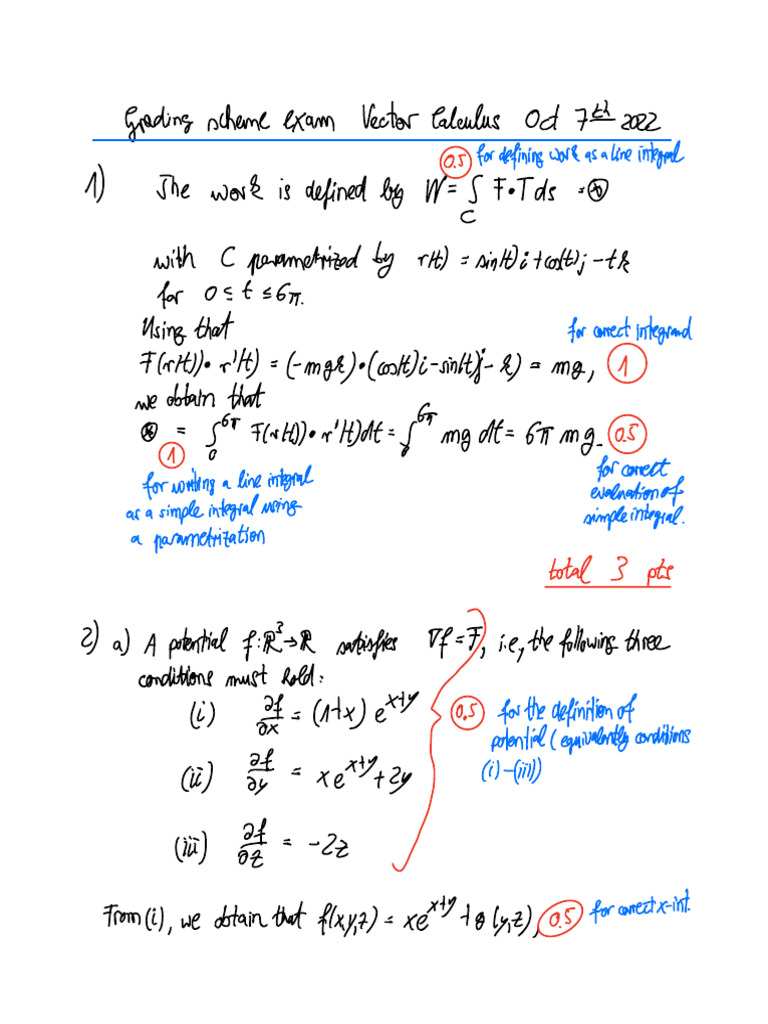 Grading scheme exam Vector Calculus Oct 7th 2022
0.5 for defining work as a line integral
1) The work is defined by W = ∫_C F • T ds = ⊛
with C parametrized by r(t) = sin(t) i + cos(t) j - t k
for 0 ≤ t ≤ 6π.
Using that
for correct integrand
F(r(t)) • r'(t) = (-mgk) • (cos(t) i - sin(t) j - k) = mg, 1
we obtain that
⊛ = ∫_0^{6π} F(r(t)) • r'(t) dt = ∫_0^{6π} mg dt = 6π mg. 0.5
1
for writing a line integral
as a simple integral using
a parametrization
for correct
evaluation of
simple integral.
total 3 pts
2) a) A potential f: ℝ³ → ℝ satisfies ∇f = F, i.e., the following three
conditions must hold:
(i) ∂f/∂x = (1+x) e^{x+y}
(ii) ∂f/∂y = x e^{x+y} + 2y
(iii) ∂f/∂z = -2z
0.5 for the definition of
potential (equivalently conditions
(i)-(iii))
From (i), we obtain that f(x,y,z) = x e^{x+y} + g(y,z), 0.5 for correct x-int.